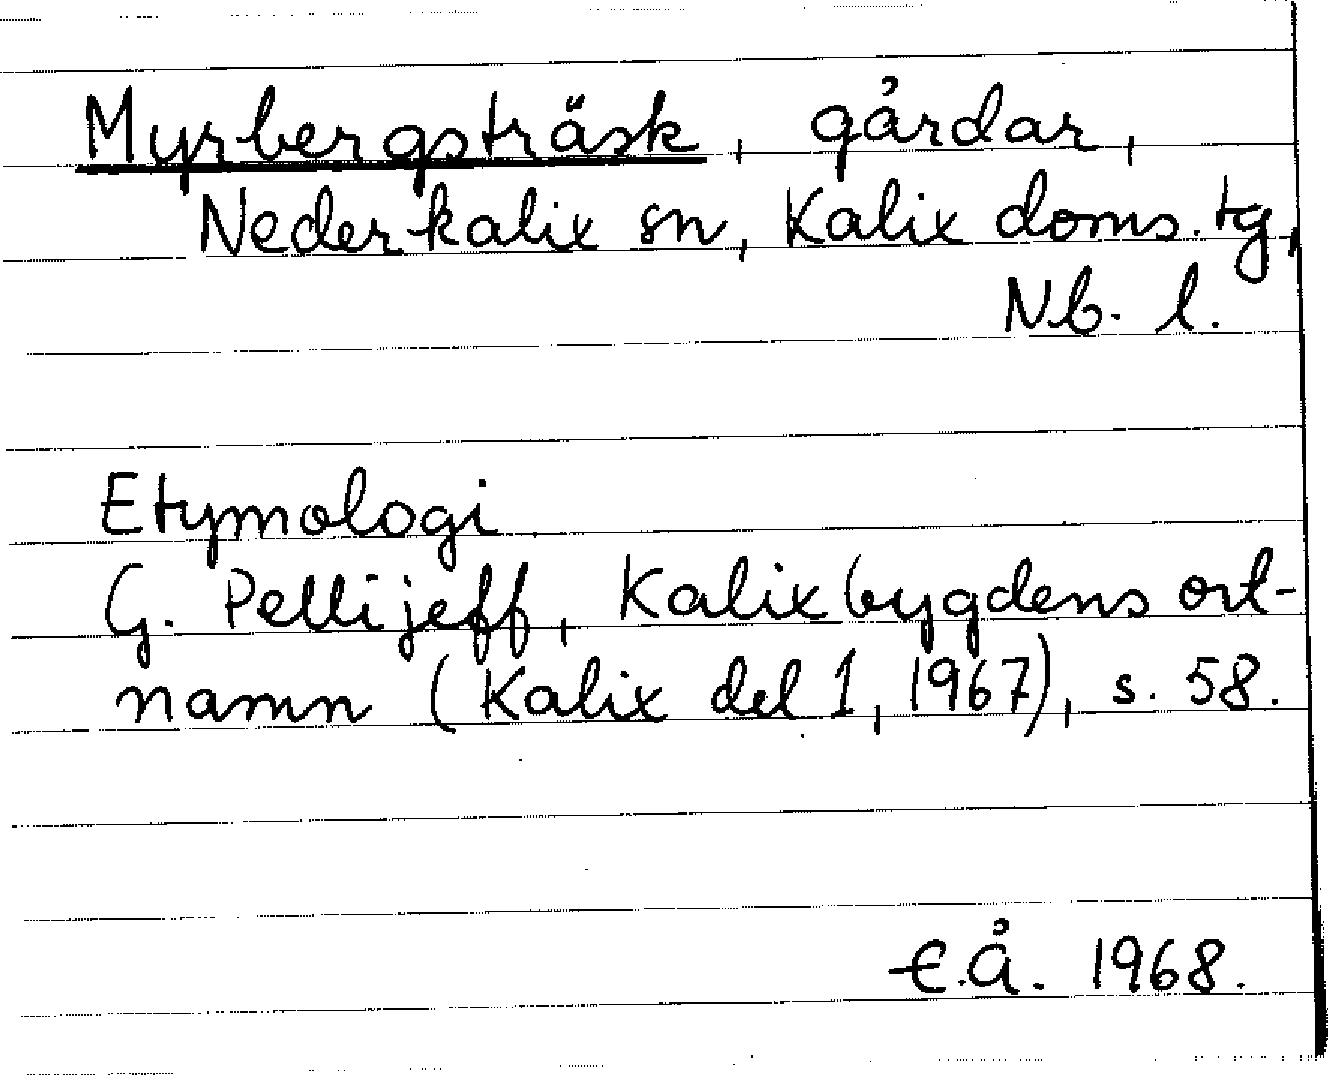 Myrbergsträsk, gårdar,
Nederkalix sn, Kalix doms. tg,
Nb. l.
Etymologi
G. Pellijeff, Kalixbygdens ort-
namn (Kalix del 1, 1967), s. 58.
E.Å. 1968.